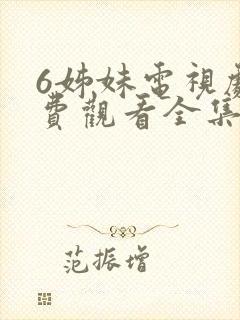 6姊妹電視劇
費觀看全集
范振增